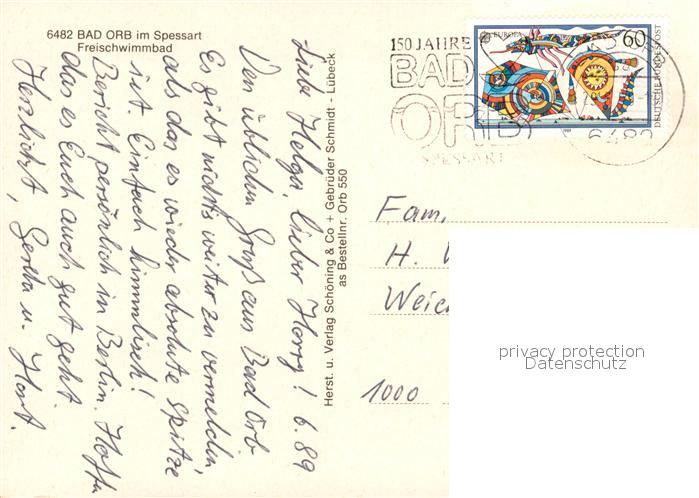 6482 BAD ORB im Spessart
Freischwimmbad
Liebe Helga, lieber Harry! 6.89
Den üblichen Gruß aus Bad Orb
Es gibt nichts weiter zu vermelden,
als das es wieder absolute Spitze
ist. Einfach himmlisch!
Bericht persönlich in Berlin. Hoffe
das es Euch auch gut geht.
Herzlichst, Gerda u. Horst.
Herst. u. Verlag Schöning & Co + Gebrüder Schmidt - Lübeck
as Bestellnr. Orb 550
150 JAHRE
BAD
ORB
SPESSART
EUROPA
60
DEUTSCHE BUNDESPOST
1989
Fam.
H.
Weic
1000
privacy protection
Datenschutz